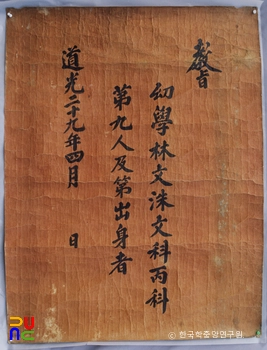 敎旨
幼學林文洙文科丙科
第九人及第出身者
道光二十九年四月 日
© 한국학중앙연구원